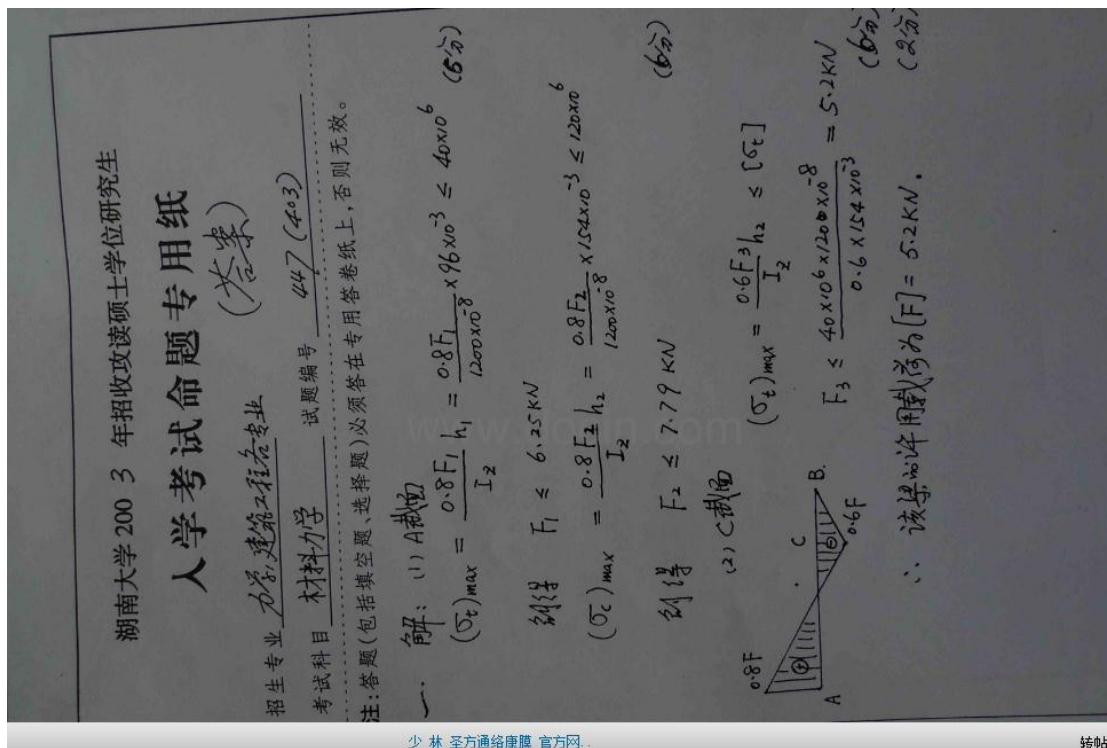 湖南大学200 3 年招收攻读硕士学位研究生
入学考试命题专用纸
(答案)
招生专业 力学,建筑工程各专业
考试科目 材料力学 试题编号 447 (403)
注:答题(包括填空题、选择题)必须答在专用答卷纸上,否则无效。
一. 解: (1) A截面
(σt)max = 0.8F1/Iz h1 = 0.8F1/1200×10^-8 × 96×10^-3 ≤ 40×10^6 (6分)
则得 F1 ≤ 6.25KN
(σc)max = 0.8F2/Iz h2 = 0.8F2/1200×10^-8 × 154×10^-3 ≤ 120×10^6
则得 F2 ≤ 7.79 KN (6分)
(2) C截面
(σt)max = 0.6F3h2/Iz ≤ [σt]
F3 ≤ 40×10^6×1200×10^-8/0.6×154×10^-3 = 5.2KN
(6分)
0.8F
⊕
A
C
B.
⊖
0.6F
∴ 该梁的许用载荷为[F] = 5.2KN. (2分)
www.docin.com
少 林 圣方通络康膜 官方网..
转帖